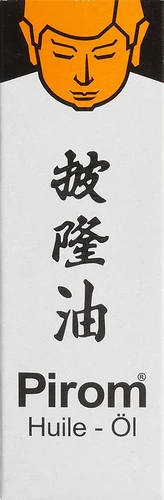 披隆油
Pirom®
Huile - Öl